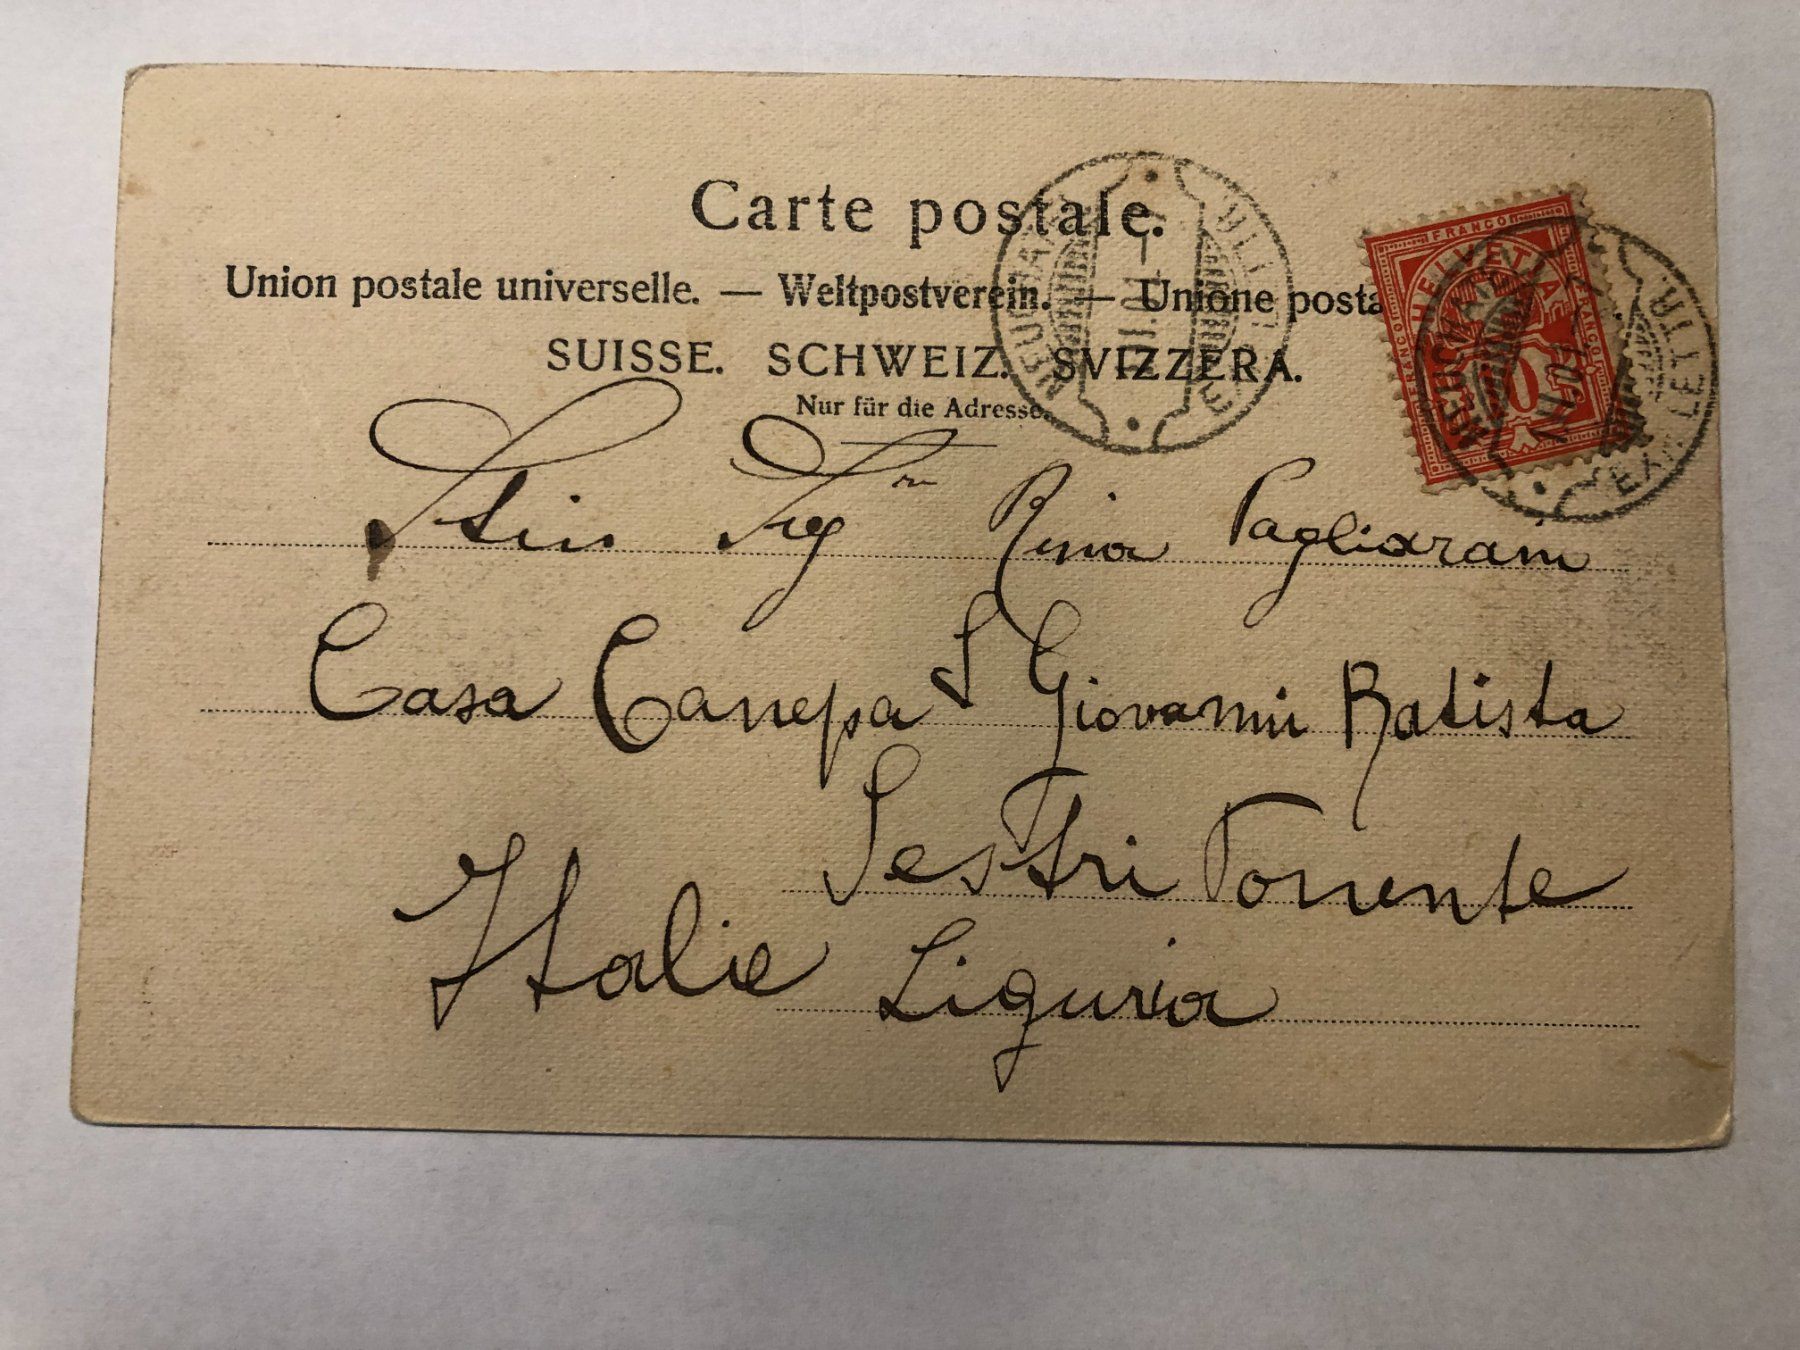 Carte postale.
Union postale universelle. — Weltpostverein. — Unione posta
SUISSE. SCHWEIZ. SVIZZERA.
Nur für die Adresse.
FRANCO
HELVETIA
FRANCO
FRANCO
10
NEUCHATEL
EXP. LETTR.
NEUCHATEL
EXP. LETTR.
Sig na Rina Pagliarani
Casa Canepa S Giovanni Batista
Sestri Ponente
Italie Liguria